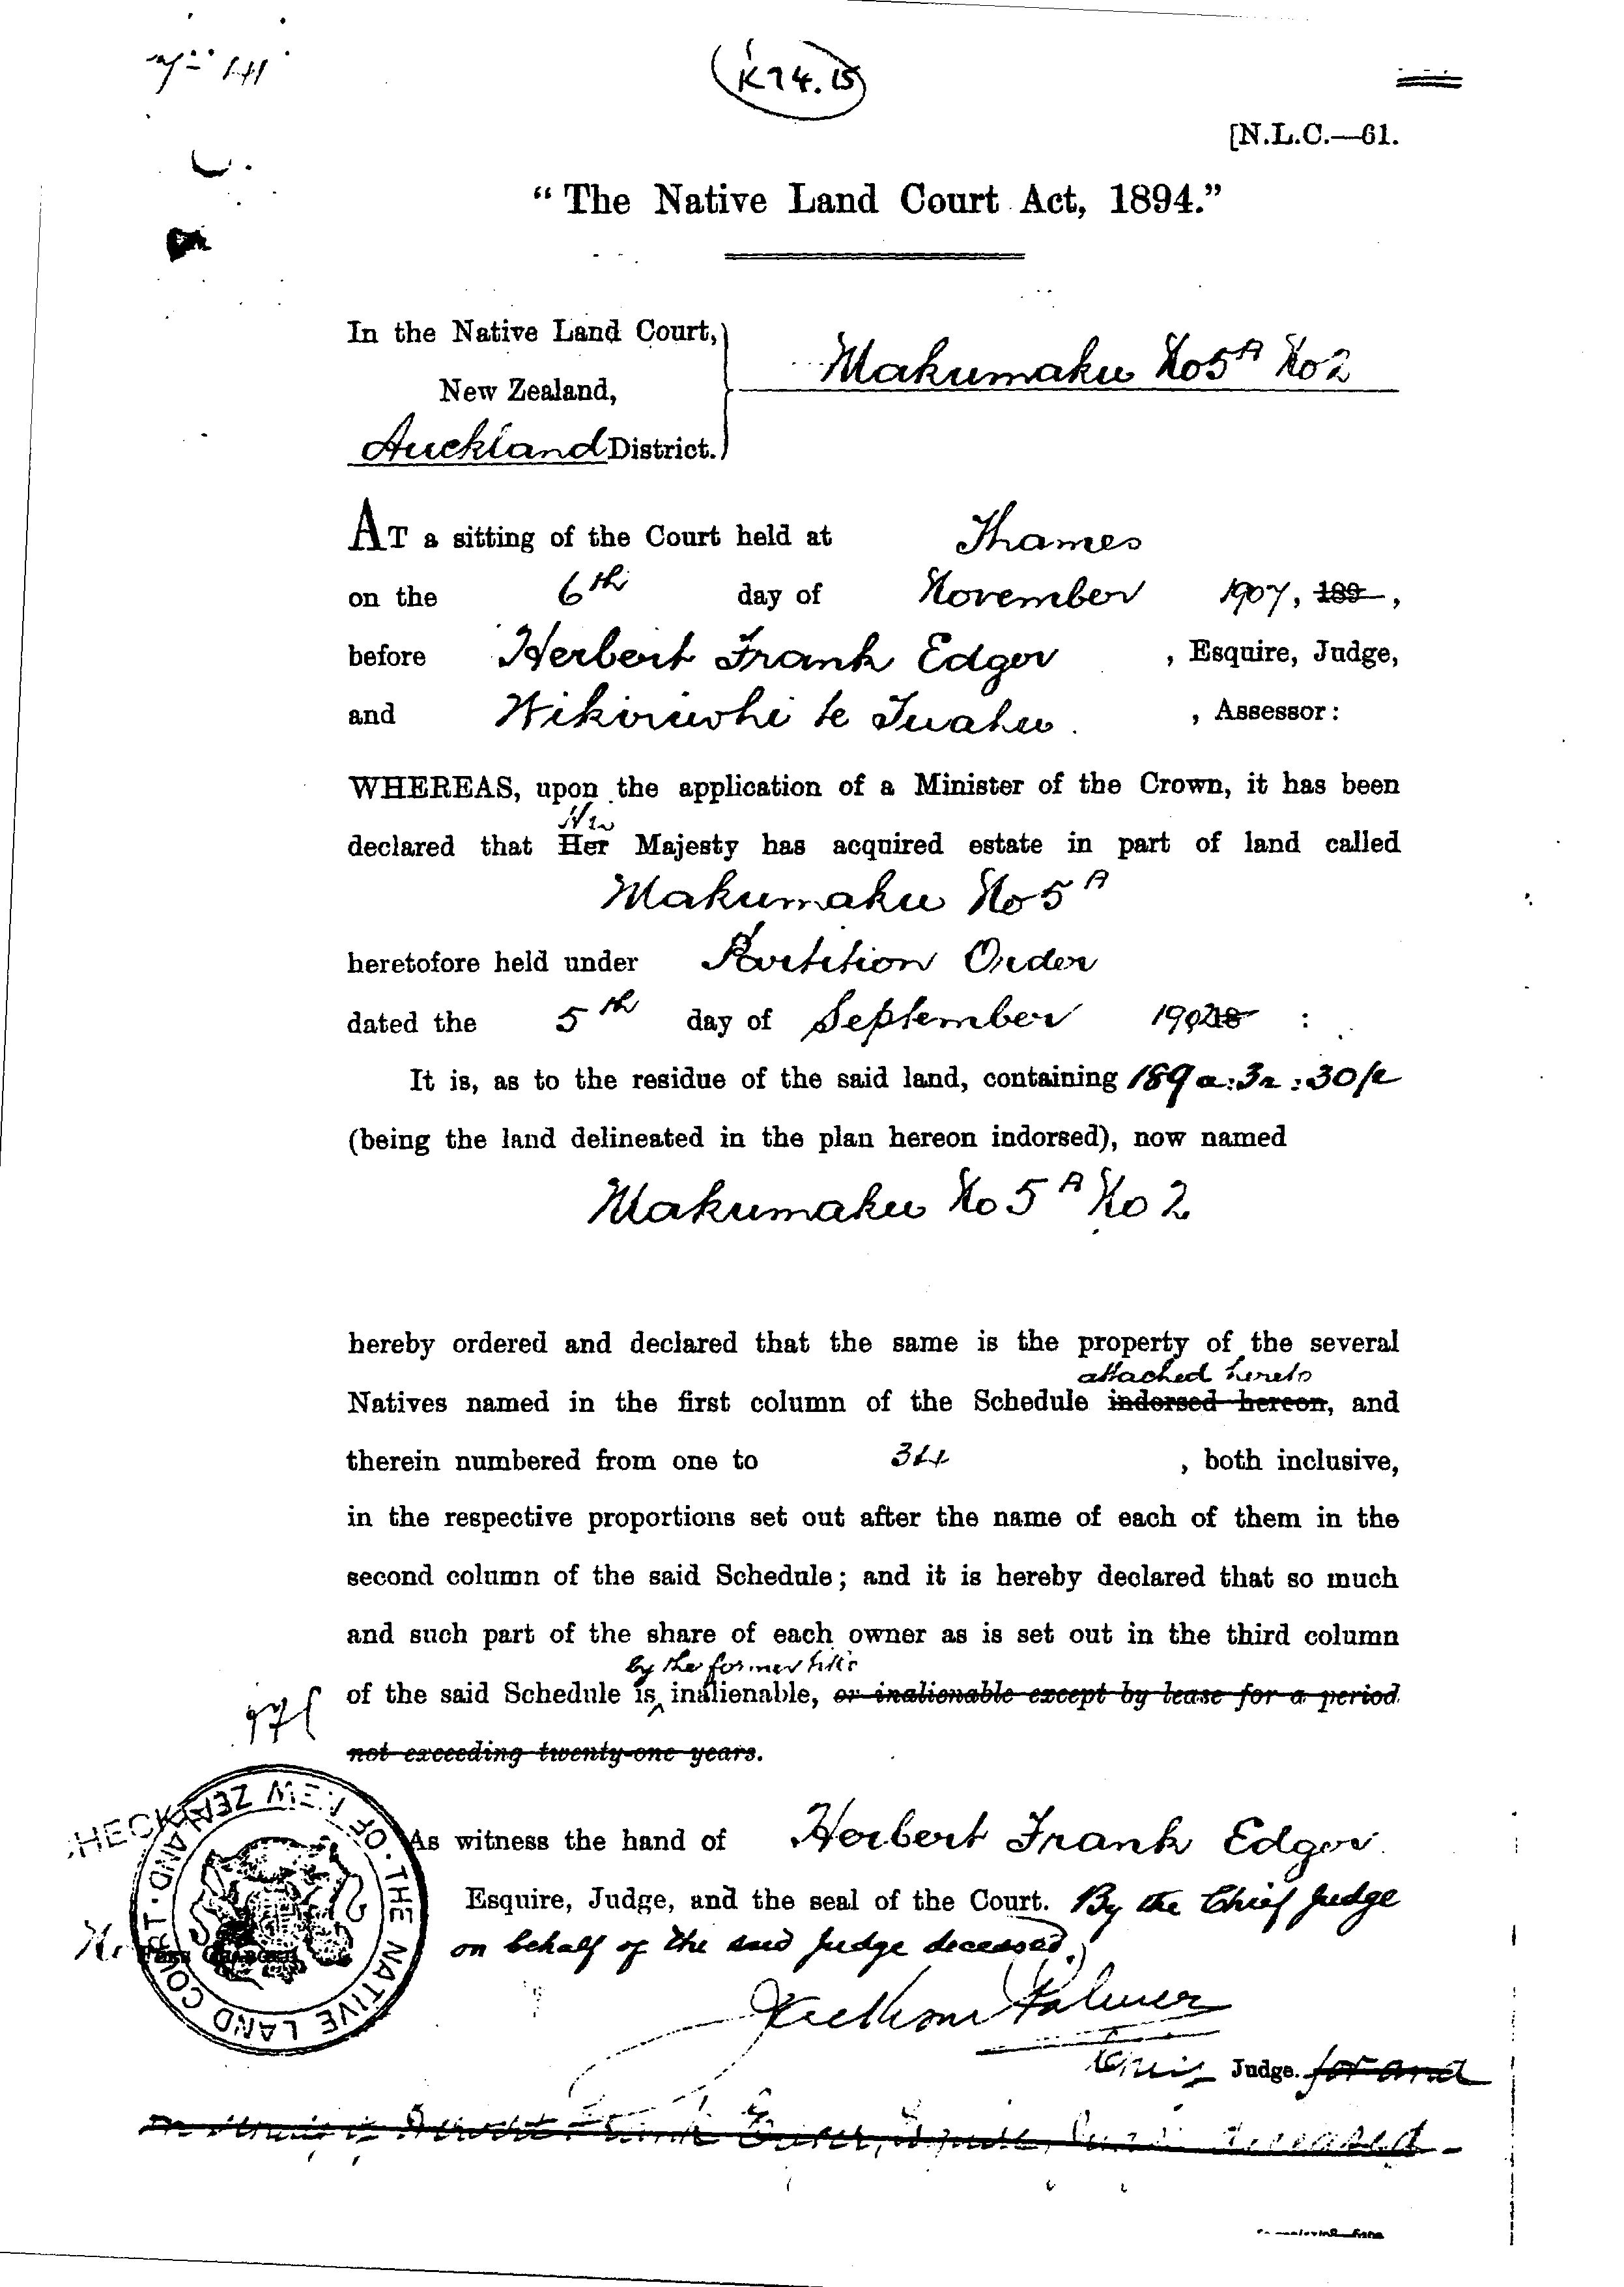 K74.15
[N.L.C.—61.
“The Native Land Court Act, 1894.”
In the Native Land Court,
New Zealand,
Auckland District.
Makumaku No 5A No 2
AT a sitting of the Court held at Thames
on the 6th day of November 1907, 189 ,
before Herbert Frank Edger , Esquire, Judge,
and Wikiriwhi te Tuahu . , Assessor:
WHEREAS, upon the application of a Minister of the Crown, it has been
His
declared that Her Majesty has acquired estate in part of land called
Makumaku No 5A
heretofore held under Partition Order
dated the 5th day of September :
It is, as to the residue of the said land, containing 189a : 3r : 30p
(being the land delineated in the plan hereon indorsed), now named
Makumaku No 5A No 2
hereby ordered and declared that the same is the property of the several
attached hereto
Natives named in the first column of the Schedule indorsed hereon, and
therein numbered from one to 34 , both inclusive,
in the respective proportions set out after the name of each of them in the
second column of the said Schedule; and it is hereby declared that so much
and such part of the share of each owner as is set out in the third column
by the former title
of the said Schedule is inalienable, or inalienable except by lease for a period
not exceeding twenty-one years.
As witness the hand of Herbert Frank Edger
Esquire, Judge, and the seal of the Court. By the Chief Judge
on behalf of the said Judge deceased.)
Jackson Palmer
Chief Judge. for and
deceased
SEAL OF THE NATIVE LAND COURT · OF NEW ZEALAND ·